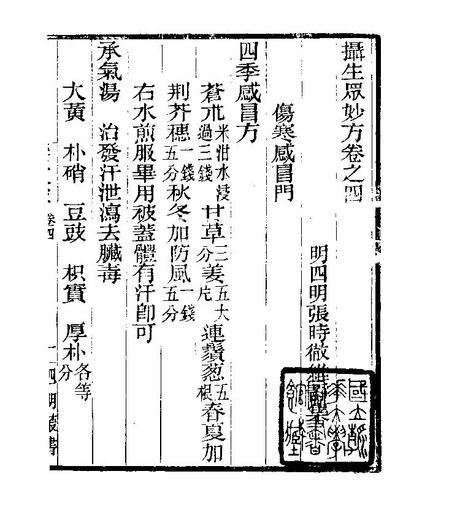 攝生眾妙方卷之四
明四明張時徹
傷寒感冒門
四季感冒方
蒼朮米泔水浸過三錢 甘草三分 姜五大片 連鬚葱五根 春夏加
荆芥穗一錢五分 秋冬加防風一錢五分
右水煎服畢用被蓋體有汗卽可
承氣湯 治發汗泄瀉去臟毒
大黃 朴硝 豆豉 枳實 厚朴各等分
卷四
一
四明叢書